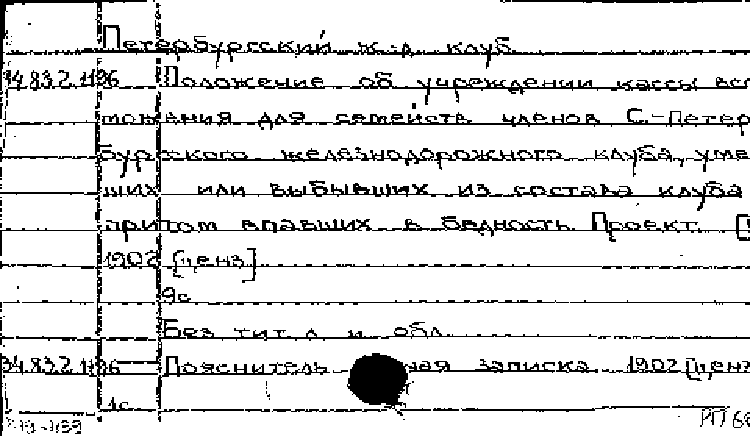 Петербургский ж.-д. клуб
34.83.2.1196 Положение об учреждении кассы всп
можения для семейств членов С.-Петер
бургского железнодорожного клуба, уме
ших или выбывших из состава клуба
притом впавших в бедность. Проект. [
1902 [ценз]
9с.
Без тит. л. и обл.
34.83.2.1196 Пояснитель ная записка. 1902 [ценз
1с.
РП 68